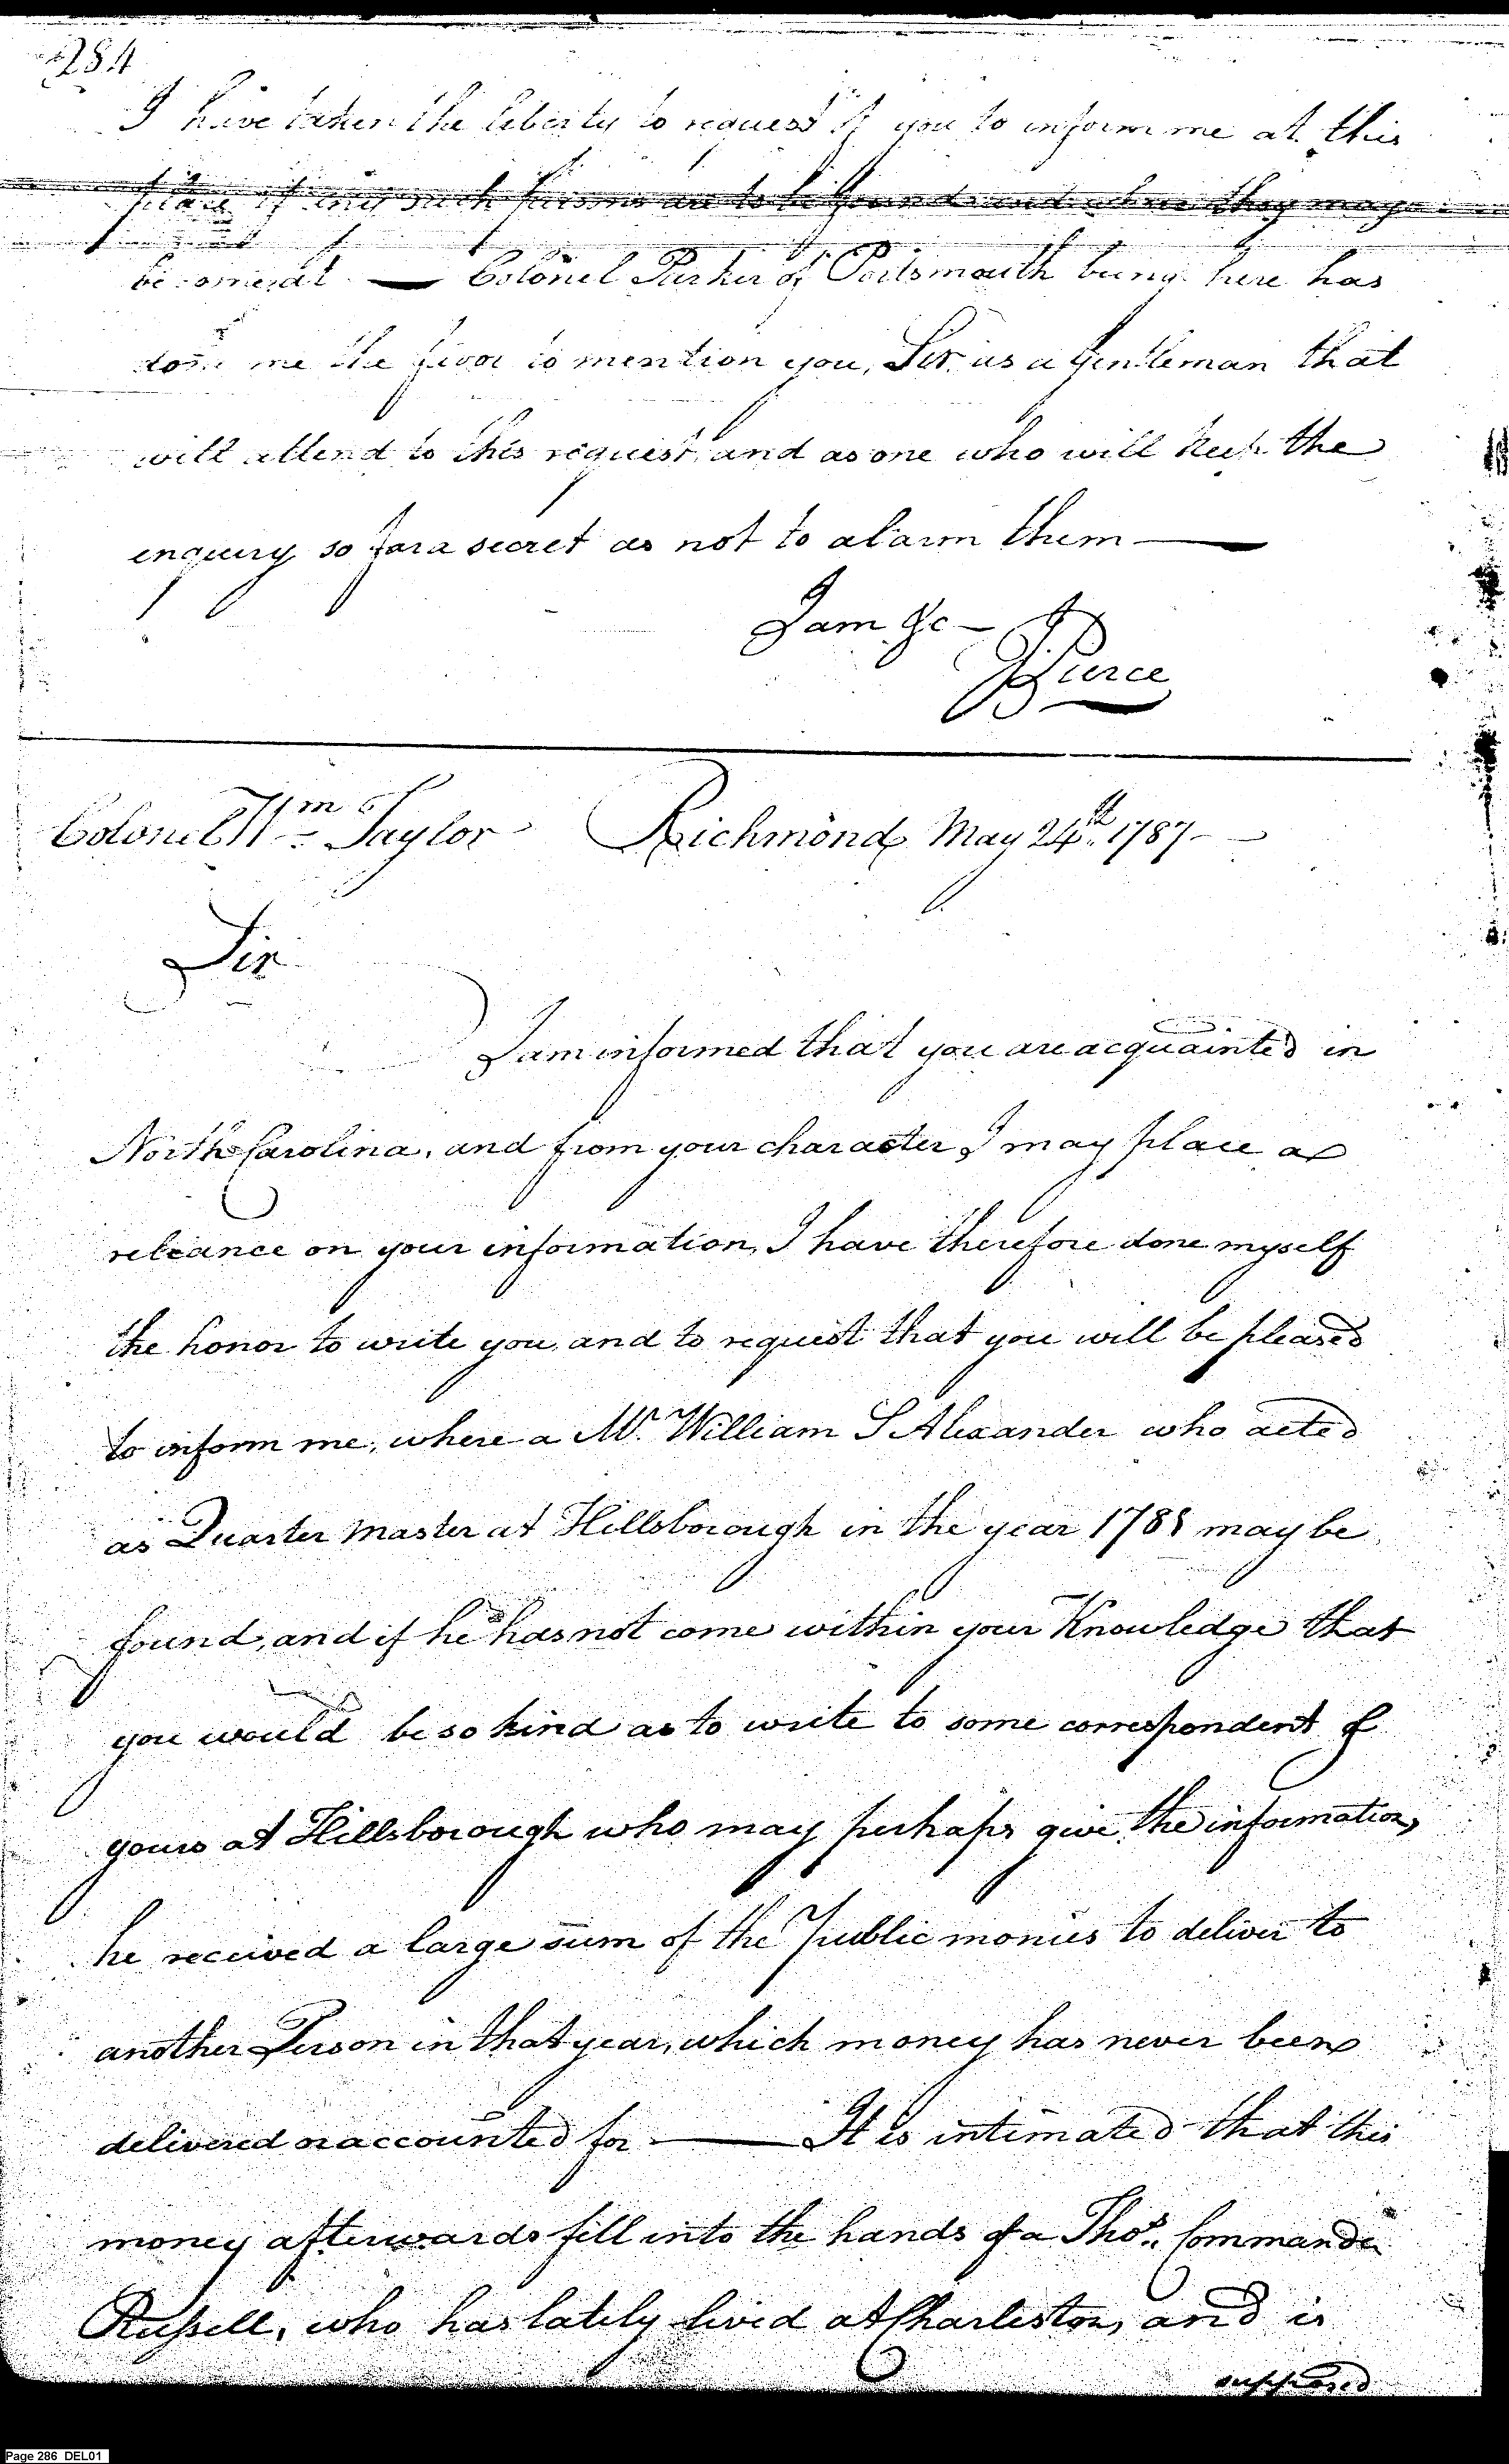 284
I have taken the liberty to request of you to inform me at this
place if any such persons are to be found and where they may
be come at — Colonel Parker of Portsmouth being here has
done me the favor to mention you, Sir, as a Gentleman that
will attend to this request, and as one who will keep the
enquiry so far a secret as not to alarm them —
I am &c —
J Pierce
Colonel Wm Taylor Richmond May 24th 1787 —
Sir
I am informed that you are acquainted in
North Carolina, and from your character I may place a
reliance on your information, I have therefore done myself
the honor to write you, and to request that you will be pleased
to inform me, where a Mr. William S Alexander who acted
as Quarter Master at Hillsborough in the year 1781 may be
found, and if he has not come within your Knowledge that
you would be so kind as to write to some correspondent of
yours at Hillsborough who may perhaps give the information,
he received a large sum of the Public monies to deliver to
another Person in that year, which money has never been
delivered or accounted for — It is intimated that this
money afterwards fell into the hands of a Thos. Commander
Russell, who has lately lived at Charleston, and is
supposed
Page 286 DEL01